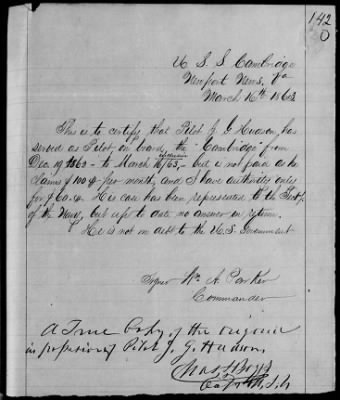 142
O
U S S Cambridge
Newport News, Va
March 16th 1863
This is to certify, that Pilot J. G. Hudson, has
served as Pilot, on board, the "Cambridge" from
Dec. 19 1862 - to March 16/63, - but is not paid as he
inclusive
claims $100 per month, and I have authority only
for $60. His case has been represented to the
of the Navy, but up to date no answer in return.
He is not in debt to the U.S. Government
Signed Wm A. Parker
Commander
A True Copy of the original
in possession of Pilot J. G. Hudson.